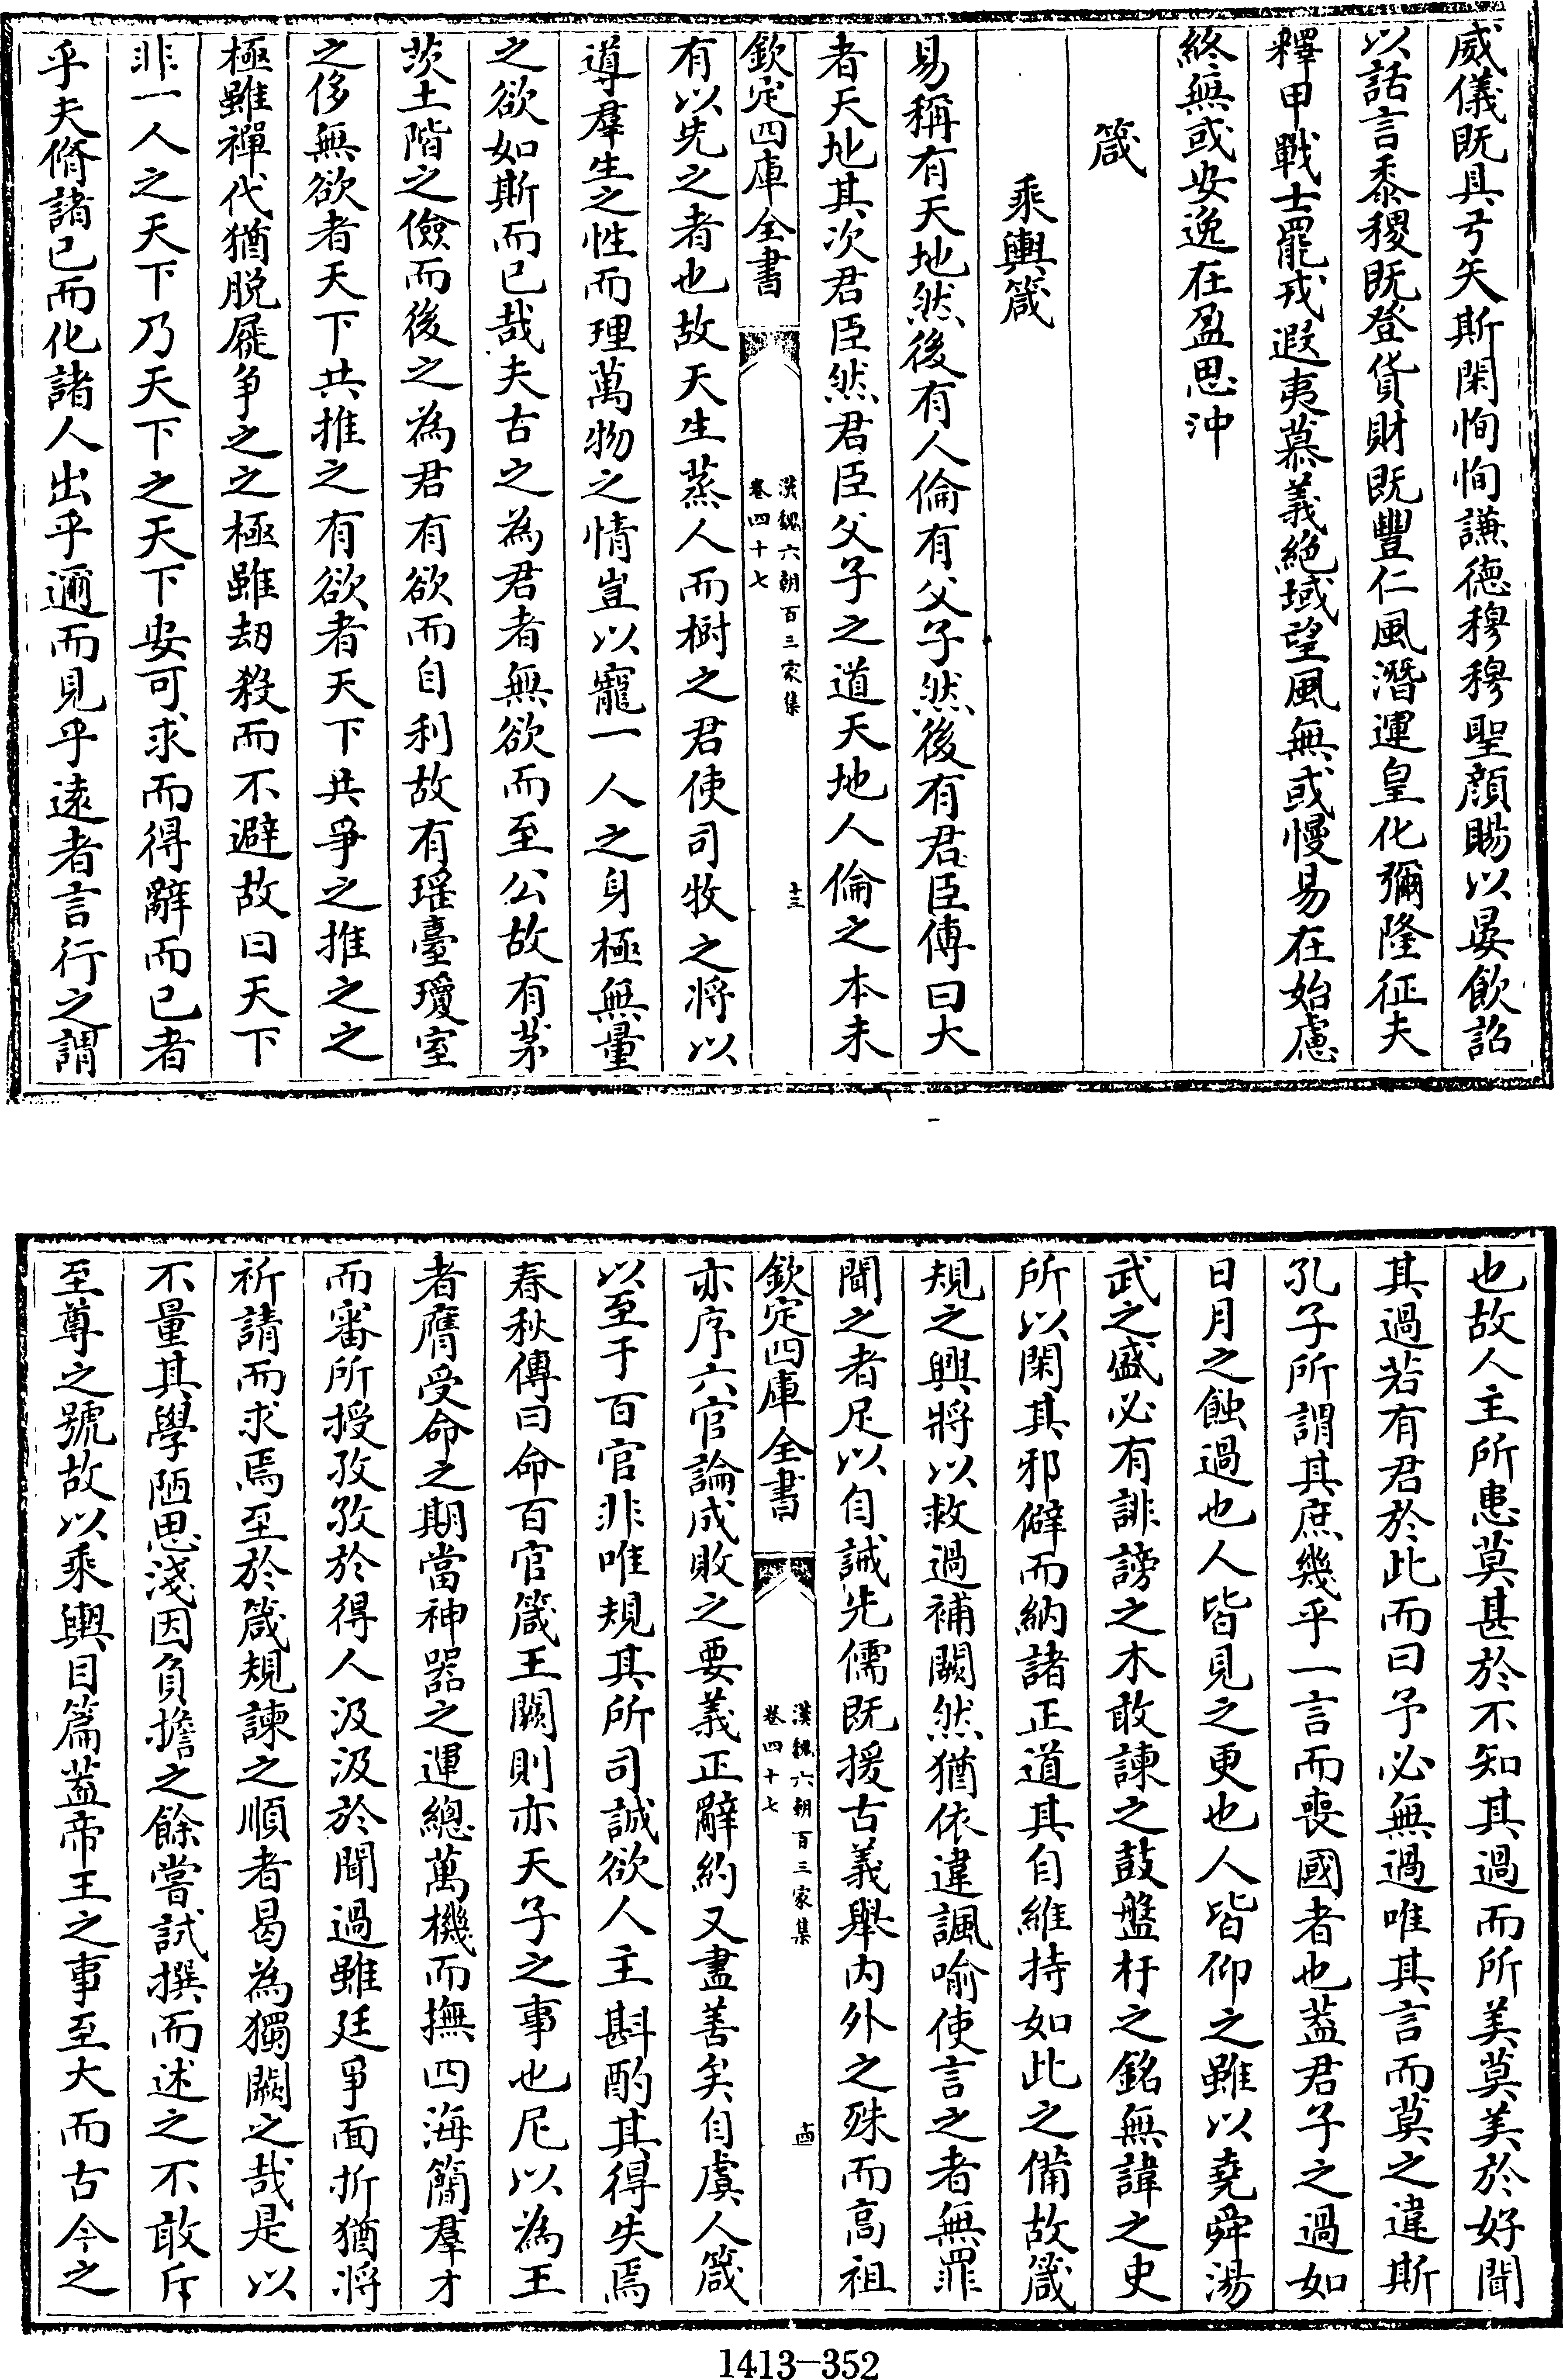 威儀既具弓矢斯閑恂恂謙德穆穆聖顔賜以晏飲詔
以話言黍稷既登貨財既豐仁風潛運皇化彌隆征夫
釋甲戰士罷戎遐夷慕義絶域望風無或慢易在始慮
終無或安逸在盈思沖
箴
乘輿箴
易稱有天地然後有人倫有父子然後有君臣傳曰大
者天地其次君臣然君臣父子之道天地人倫之本未
欽定四庫全書
漢魏六朝百三家集
卷四十七
十三
有以先之者也故天生蒸人而樹之君使司牧之將以
導羣生之性而理萬物之情豈以寵一人之身極無量
之欲如斯而已哉夫古之為君者無欲而至公故有茅
茨土階之儉而後之為君有欲而自利故有瑶臺瓊室
之侈無欲者天下共推之有欲者天下共爭之推之之
極雖禪代猶脱屣爭之之極雖刼殺而不避故曰天下
非一人之天下乃天下之天下安可求而得辭而已者
乎夫脩諸已而化諸人出乎邇而見乎遠者言行之謂
也故人主所患莫甚於不知其過而所美莫美於好聞
其過若有君於此而曰予必無過唯其言而莫之違斯
孔子所謂其庶幾乎一言而喪國者也葢君子之過如
日月之蝕過也人皆見之更也人皆仰之雖以堯舜湯
武之盛必有誹謗之木敢諫之鼓盤杅之銘無諱之史
所以閑其邪僻而納諸正道其自維持如此之備故箴
規之興將以救過補闕然猶依違諷喻使言之者無罪
聞之者足以自誡先儒既援古義舉内外之殊而高祖
欽定四庫全書
漢魏六朝百三家集
卷四十七
十四
亦序六官論成敗之要義正辭約又盡善矣自虞人箴
以至于百官非唯規其所司誠欲人主斟酌其得失焉
春秋傳曰命百官箴王闕則亦天子之事也尼以為王
者膺受命之期當神器之運總萬機而撫四海簡羣才
而審所授孜孜於得人汲汲於聞過雖廷爭面折猶將
祈請而求焉至於箴規諫之順者曷為獨闕之哉是以
不量其學陋思淺因負擔之餘嘗試撰而述之不敢斥
至尊之號故以乘輿目篇葢帝王之事至大而古今之
1413-352